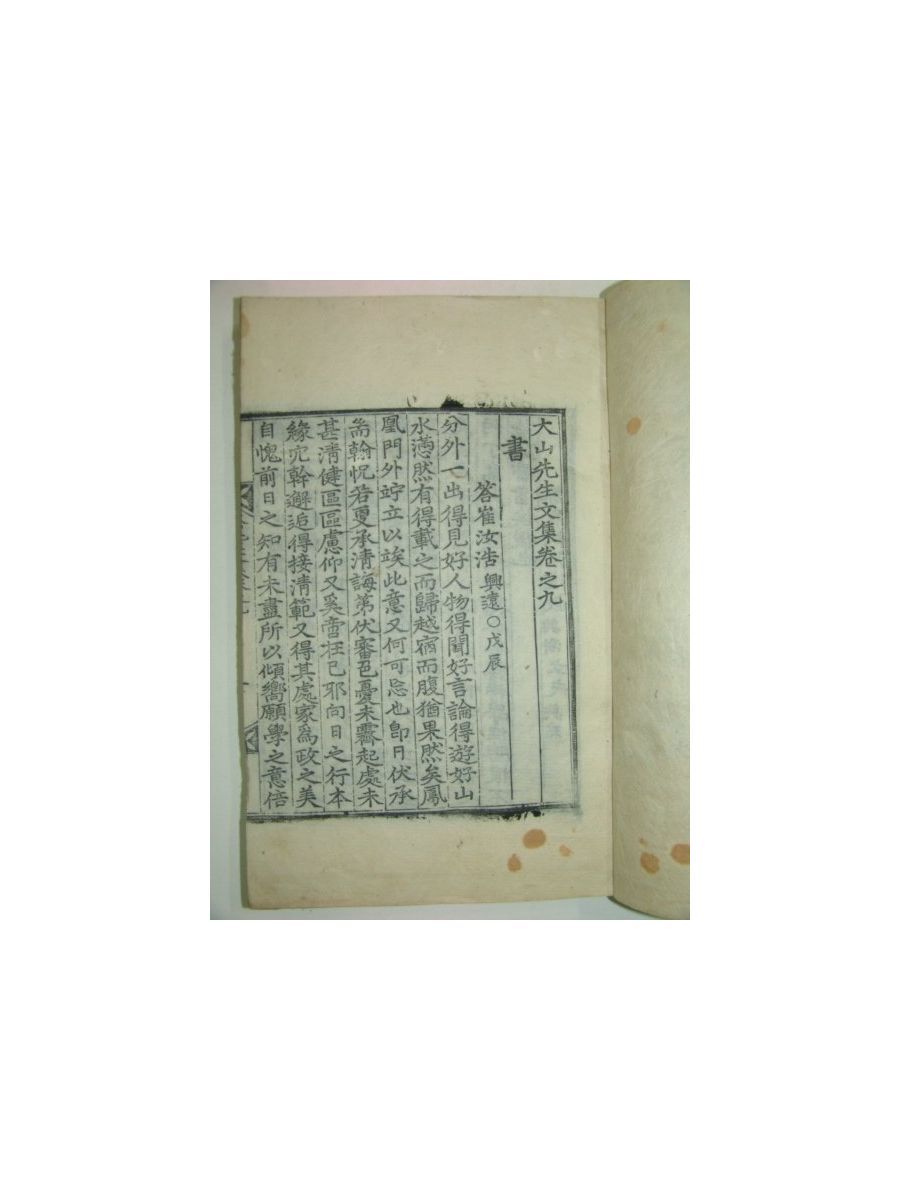 大山先生文集卷之九
書
答崔汝浩興遠○戊辰
分外一出得見好人物得聞好言論得遊好山
水懣然有得載之而歸越宿而腹猶果然矣鳳
凰門外竚立以竢此意又何可忘也卽日伏承
耑翰怳若更承淸誨第伏審邑憂未霽起處未
甚淸健區區慮仰又奚啻在己耶向日之行本
緣宂幹邂逅得接淸範又得其處家爲政之美
自愧前日之知有未盡所以傾嚮願學之意倍